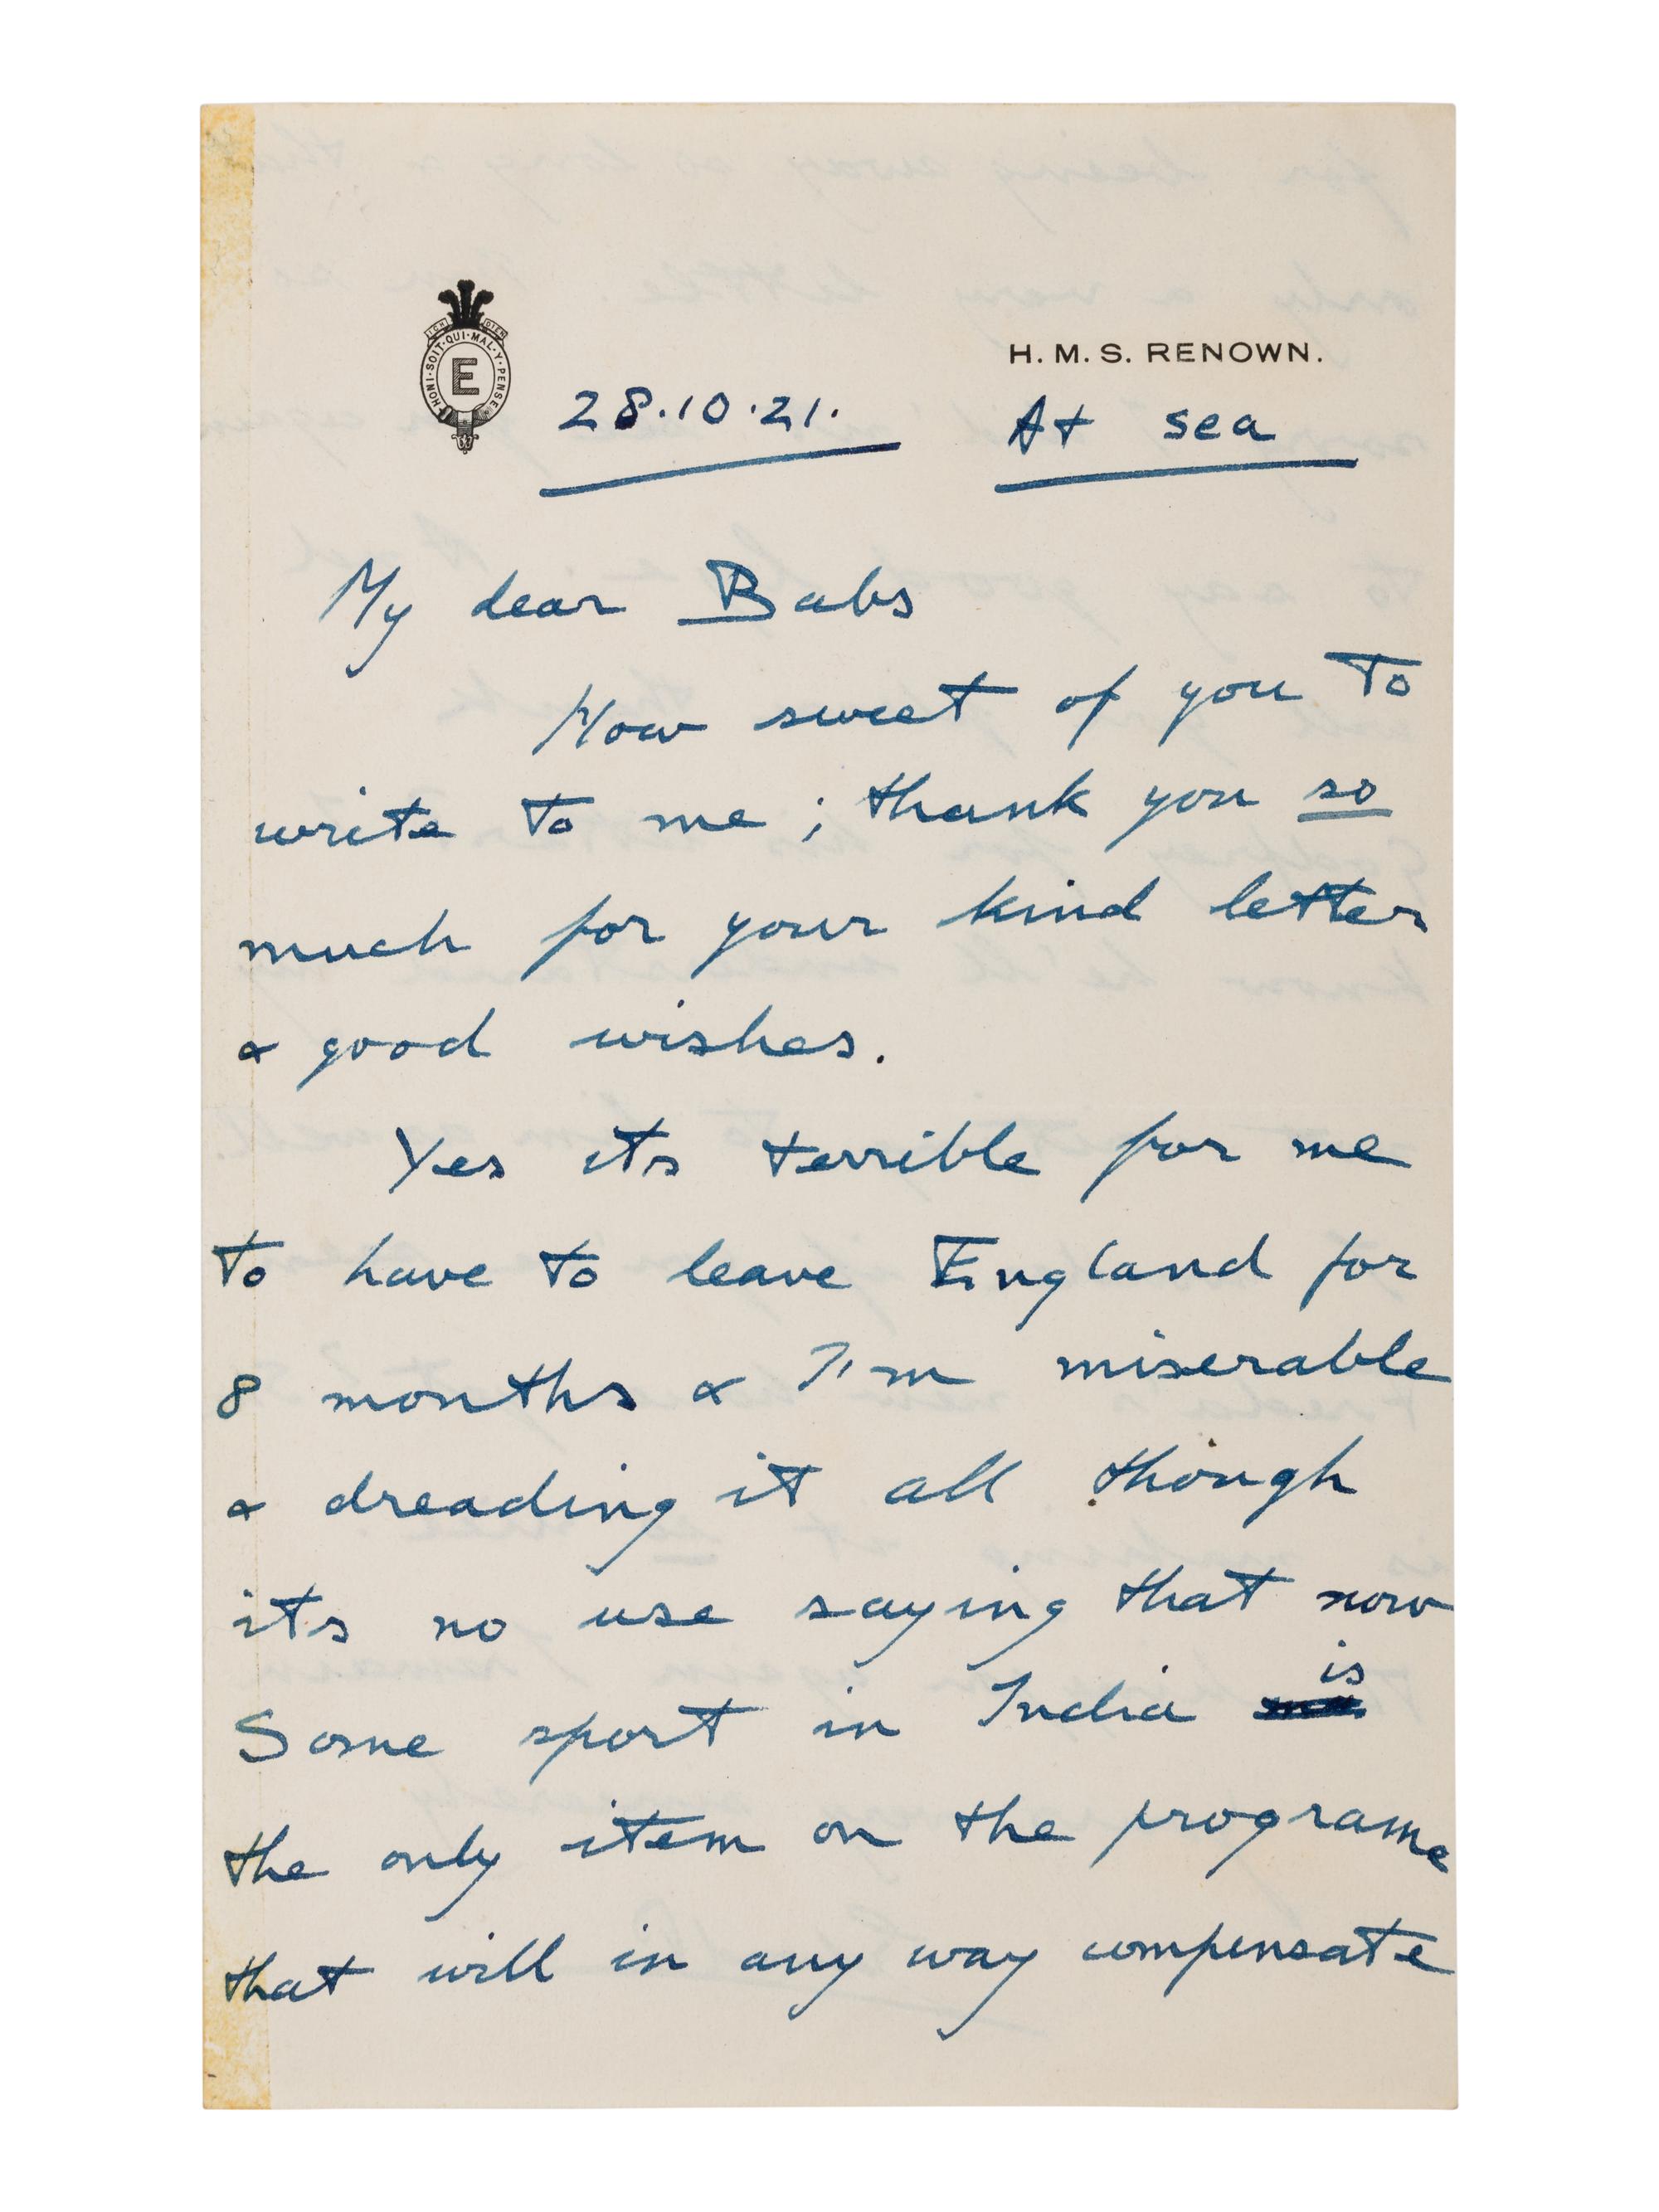 ICH DIEN
HONI·SOIT·QUI·MAL·Y·PENSE
E
H. M. S. RENOWN.
28.10.21. At sea
My dear Babs
How sweet of you to
write to me ; thank you so
much for your kind letter
& good wishes.
Yes its terrible for me
to have to leave England for
8 months & I'm miserable
& dreading it all though
its no use saying that now
Some sport in India is
the only item on the programe
that will in any way compensate